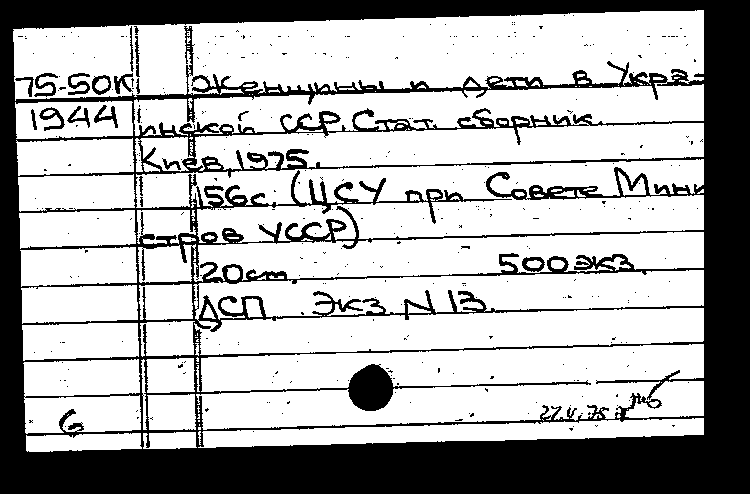 75-50К Женщины и дети в Укра-
1944 инской ССР. Стат. сборник.
Киев, 1975.
156с. (ЦСУ при Совете Мини
стров УССР).
20см. 500экз.
ДСП. Экз. N 13.
6 27.V.75г